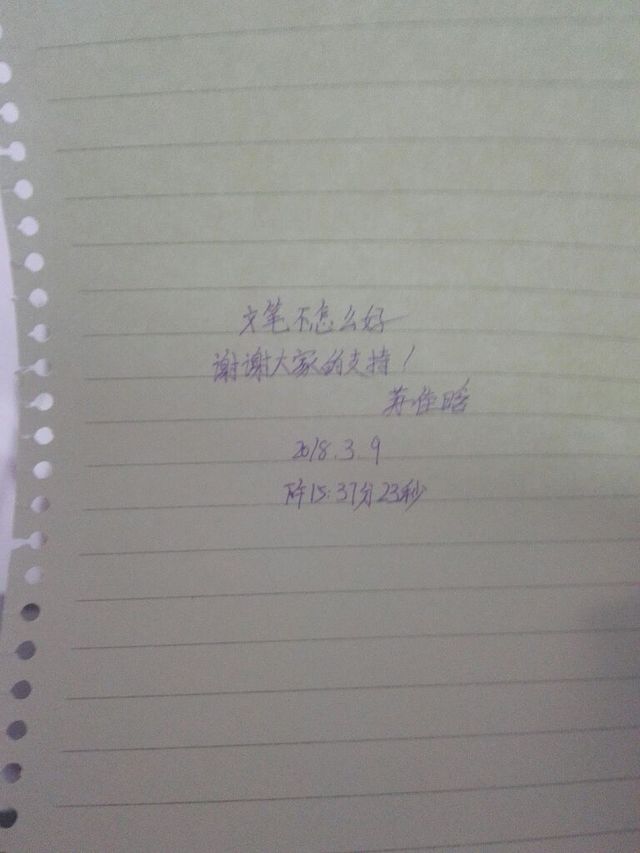 文笔不怎么好
谢谢大家的支持！
2018.3.9
15:37分23秒